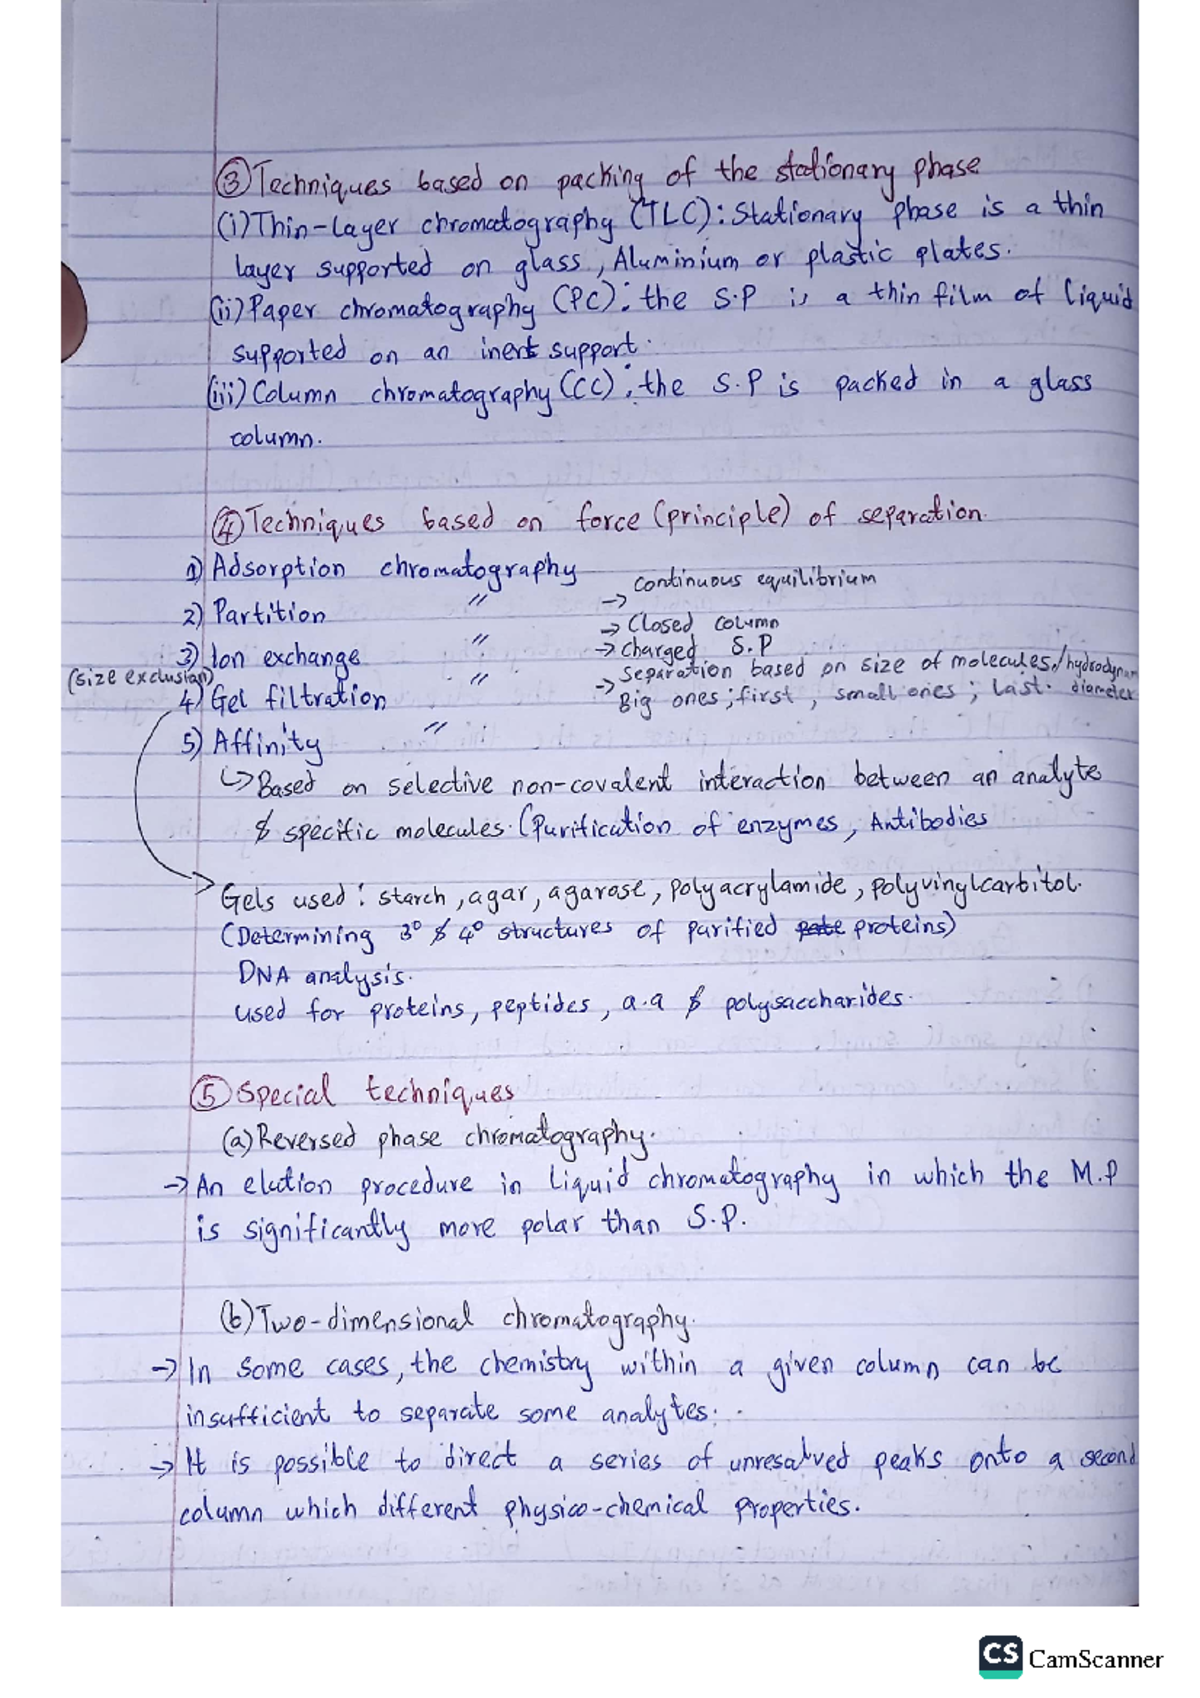 ③ Techniques based on packing of the stationary phase
(i) Thin-Layer chromatography (TLC): Stationary phase is a thin
layer supported on glass, Aluminium or plastic plates.
(ii) Paper chromatography (PC): the S.P is a thin film of liquid
supported on an inert support.
(iii) Column chromatography (CC): the S.P is packed in a glass
column.
④ Techniques based on force (principle) of separation.
1) Adsorption chromatography
2) Partition " → continuous equilibrium
3) Ion exchange " → Closed column
→ Charged S.P
(size exclusion)
4) Gel filtration " → Separation based on size of molecules./hydrodynam
Big ones; first, small ones; last. diameter
5) Affinity "
↳ Based on selective non-covalent interaction between an analyte
& specific molecules. (Purification of enzymes, Antibodies
Gels used: starch, agar, agarose, polyacrylamide, polyvinylcarbitol.
(Determining 3° & 4° structures of purified proteins)
DNA analysis.
used for proteins, peptides, a.a & polysaccharides.
⑤ Special techniques
(a) Reversed phase chromatography.
→ An elution procedure in liquid chromatography in which the M.P
is significantly more polar than S.P.
(b) Two-dimensional chromatography.
→ In some cases, the chemistry within a given column can be
insufficient to separate some analytes.
→ It is possible to direct a series of unresolved peaks onto a second
column which different physico-chemical properties.
CS CamScanner